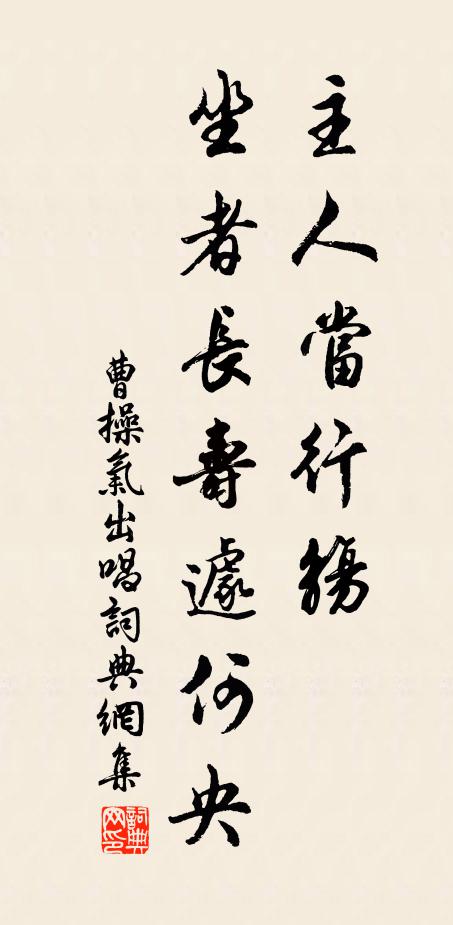 主人當行觴
坐者長壽遽何央
曹操氣出唱詞典網集
詞典網印